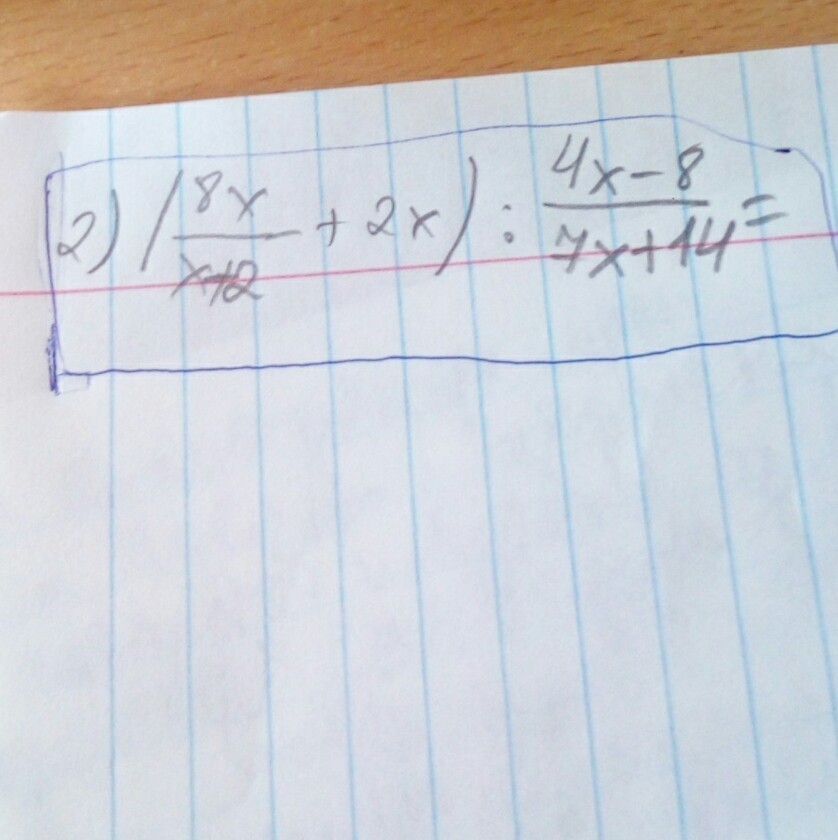 2) (8x/x+2 + 2x) : 4x-8/7x+14 =